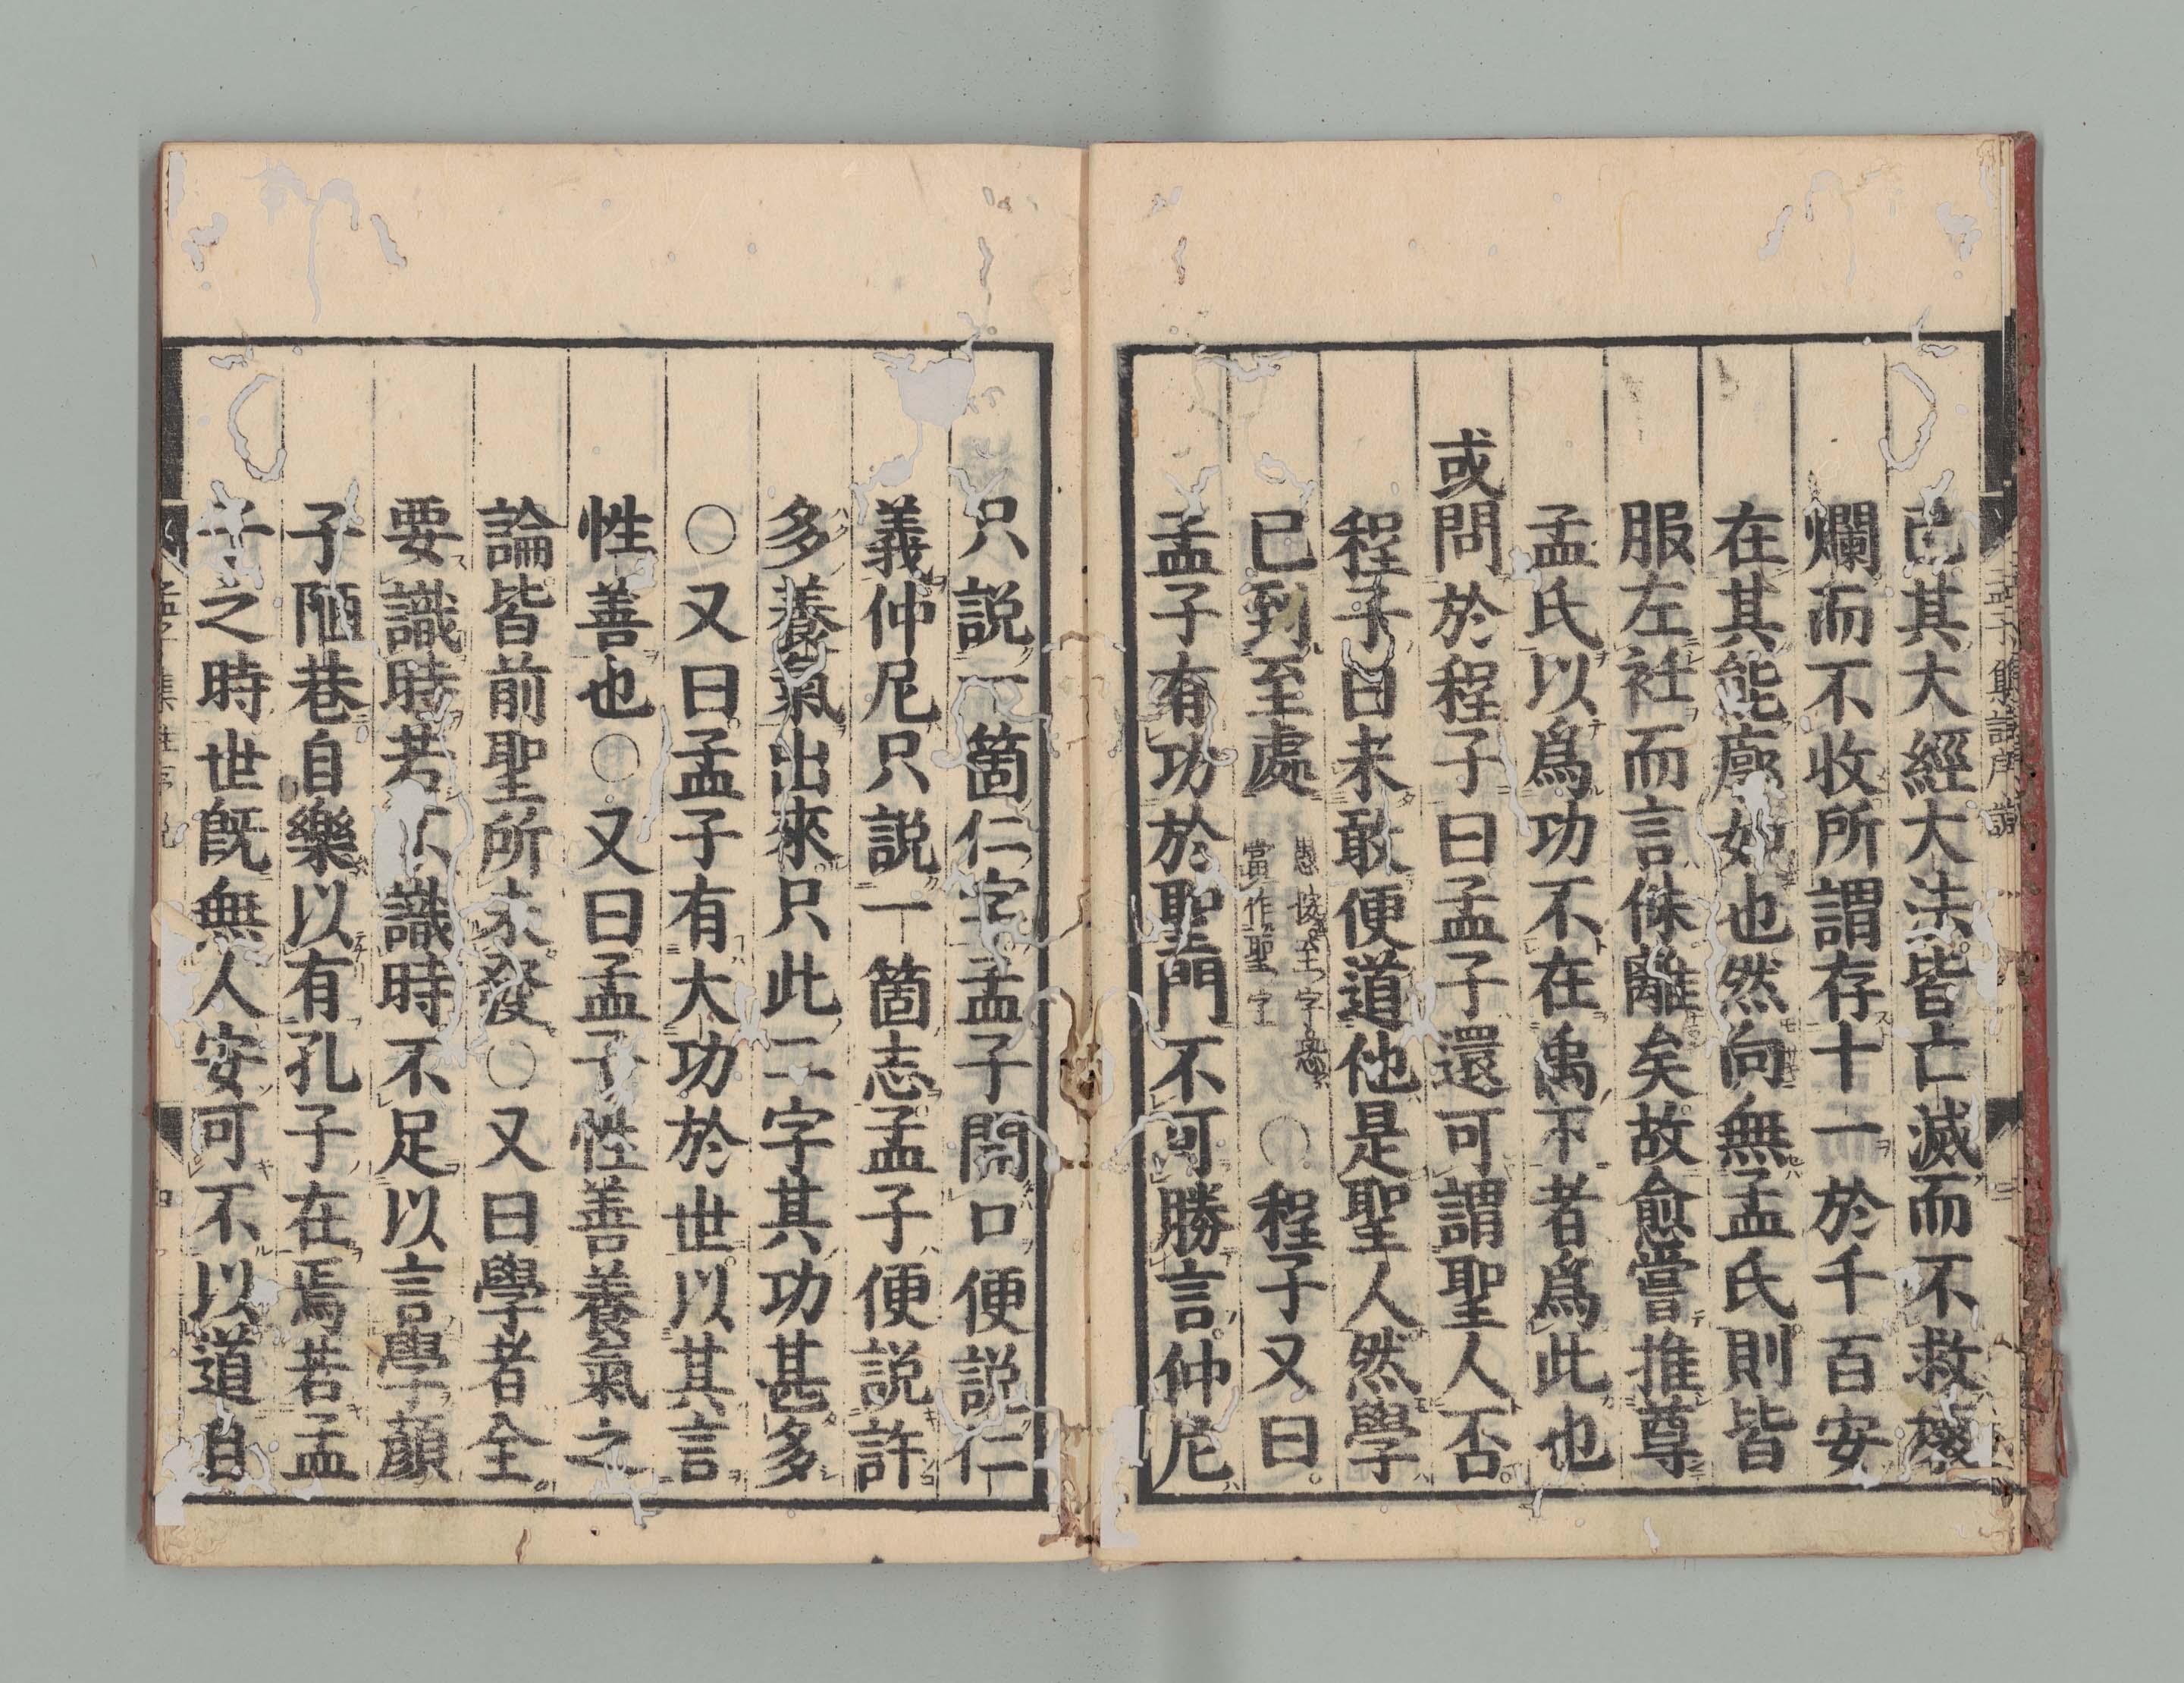 已其大經大法皆亡滅而不救壞
爛而不收所謂存十一於千百安
在其能廓如也然向無孟氏則皆
服左衽而言侏離矣故愈嘗推尊
孟氏以爲功不在禹下者爲此也
或問於程子曰孟子還可謂聖人否
程子曰未敢便道他是聖人然學
已到至處 愚按至字恐 當作聖字 ○程子又曰
孟子有功於聖門不可勝言仲尼
只説一箇仁字孟子開口便説仁
義仲尼只説一箇志孟子便説許
多養氣出來只此二字其功甚多
○又曰孟子有大功於世以其言
性善也○又曰孟子性善養氣之
論皆前聖所未發○又曰學者全
要識時若不識時不足以言學顔
子陋巷自樂以有孔子在焉若孟
子之時世既無人安可不以道自
孟子集註序説